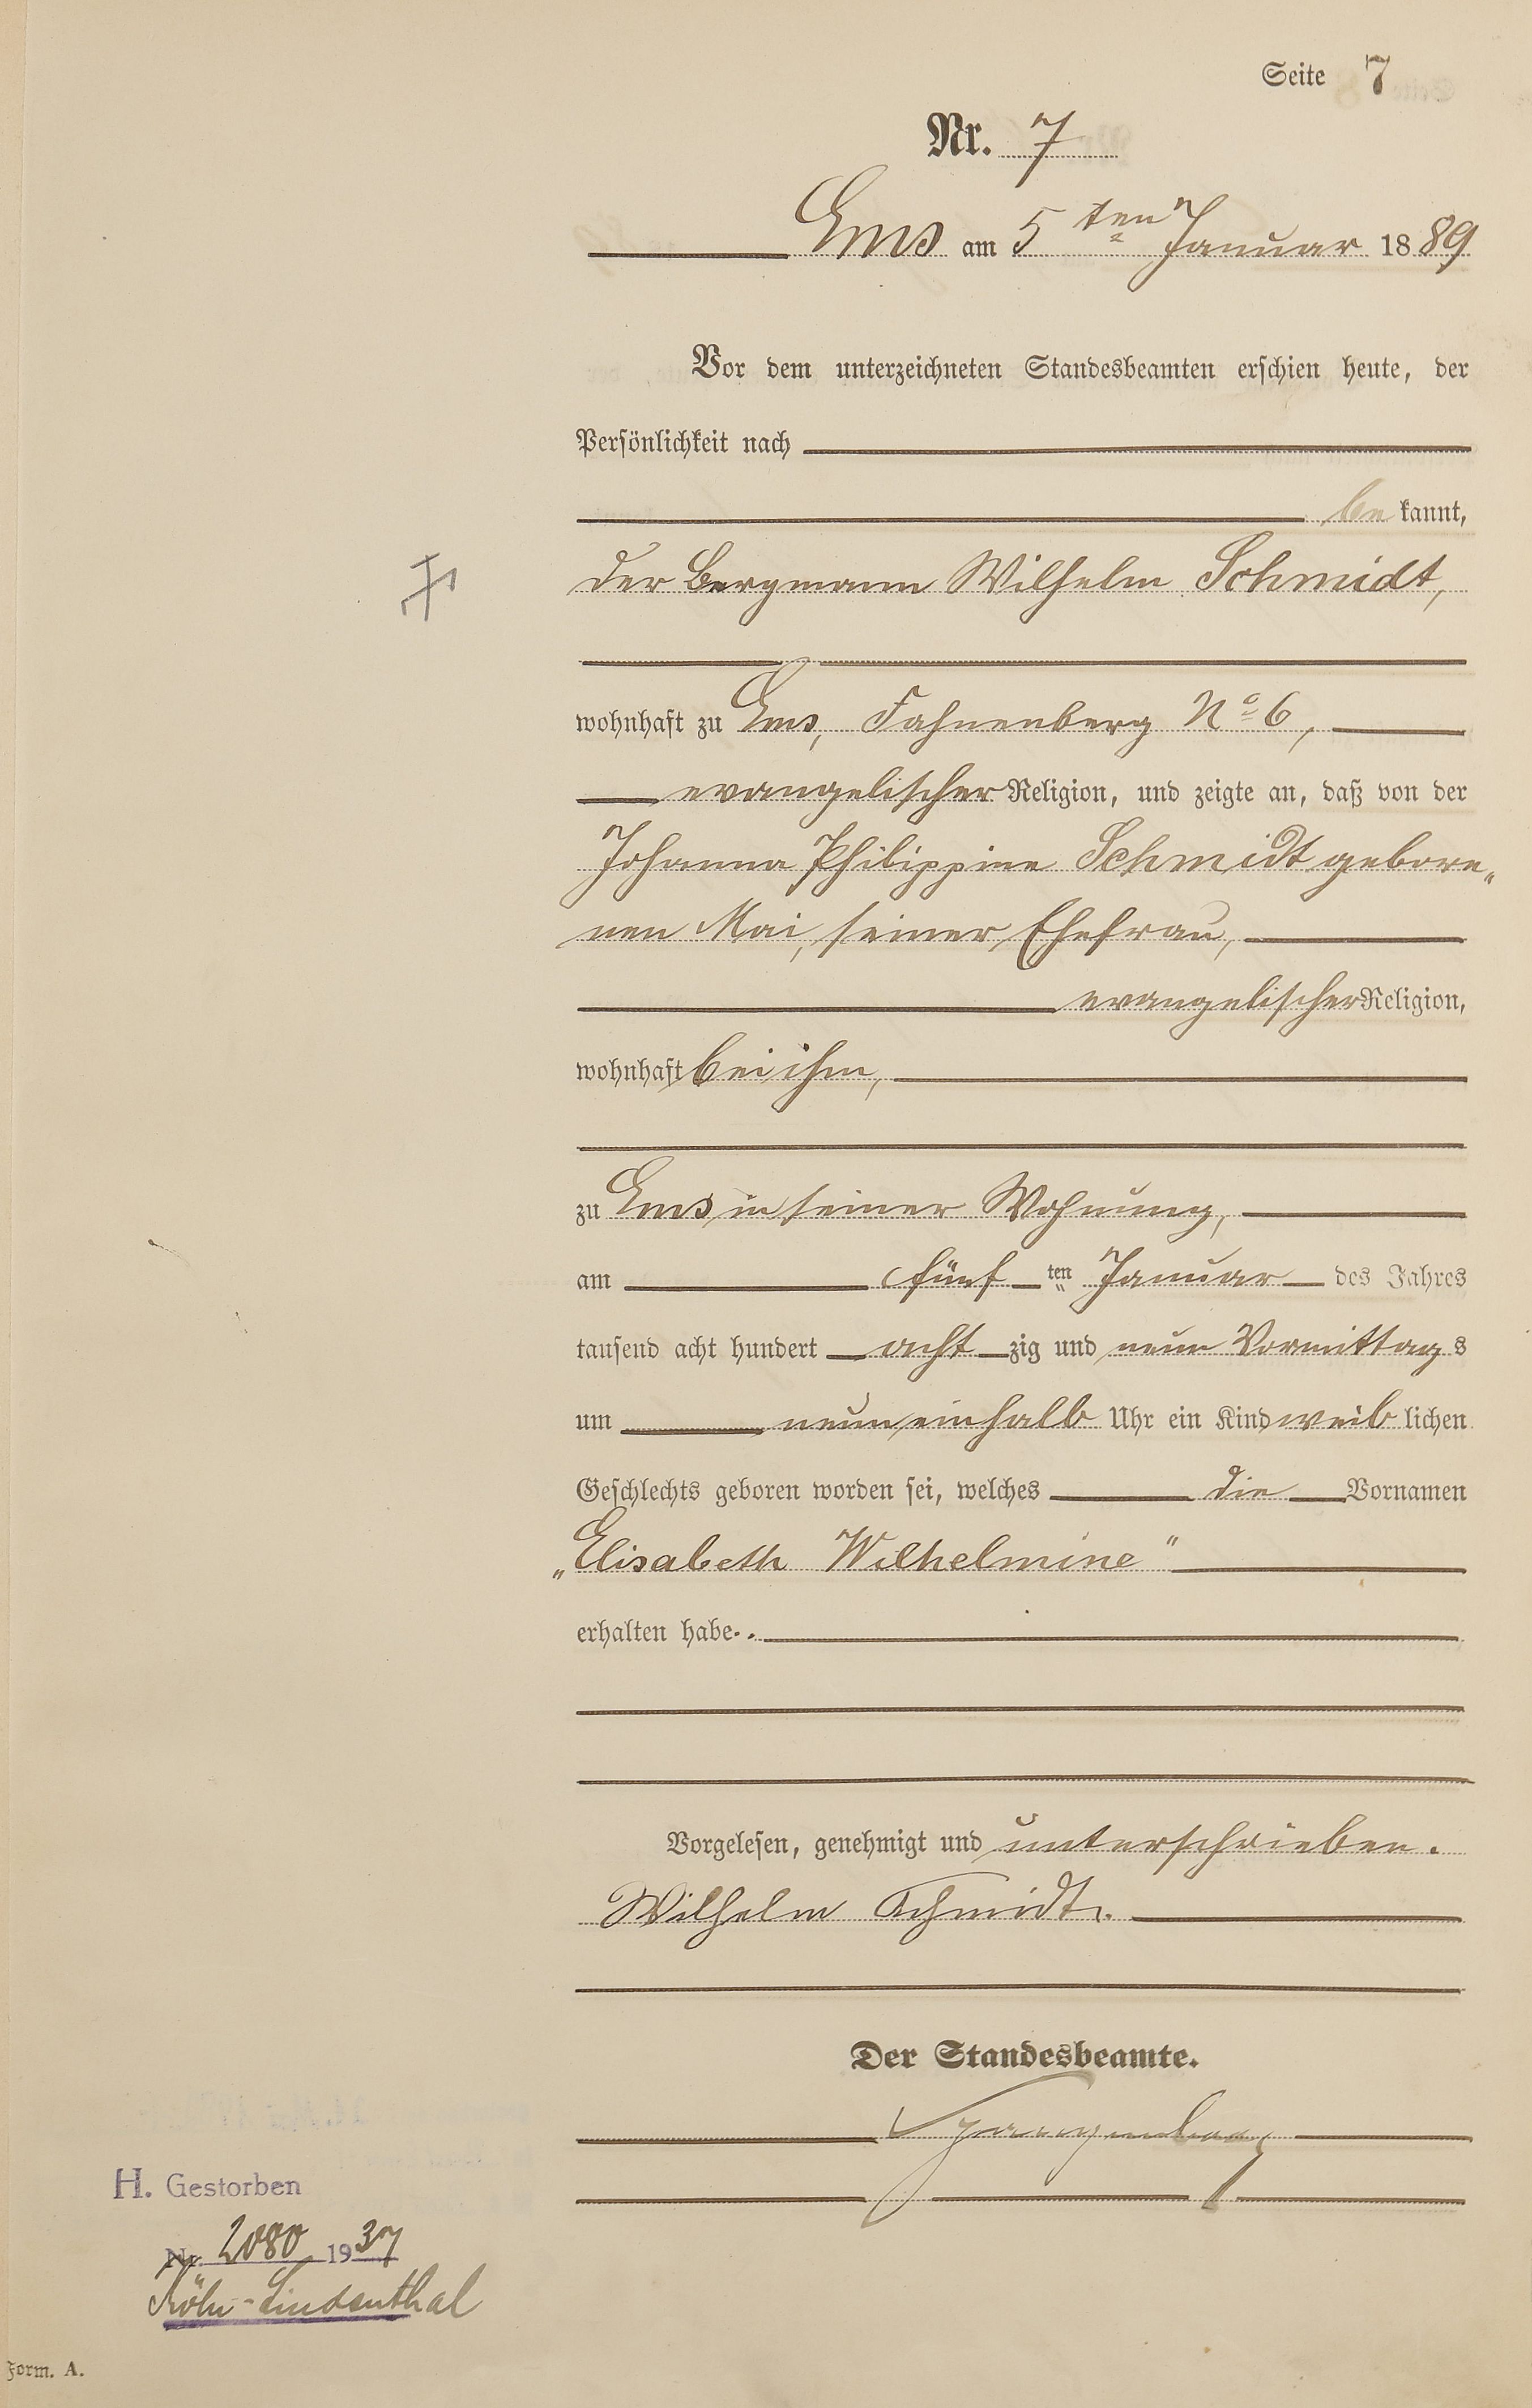 Seite 7
Nr. 7
Ems am 5ten Januar 1889
Vor dem unterzeichneten Standesbeamten erschien heute, der
Persönlichkeit nach
bekannt,
der Bergmann Wilhelm Schmidt,
wohnhaft zu Ems, Fahnenberg No 6,
evangelischer Religion, und zeigte an, daß von der
Johanna Philippine Schmidt gebore„
nen Mai, seiner Ehefrau,
evangelischer Religion,
wohnhaft bei ihm,
zu Ems in seiner Wohnung,
am fünften Januar des Jahres
tausend acht hundert achtzig und neun Vormittags
um neuneinhalb Uhr ein Kind weiblichen
Geschlechts geboren worden sei, welches die Vornamen
„Elisabeth Wilhelmine"
erhalten habe.
Vorgelesen, genehmigt und unterschrieben.
Wilhelm Schmidt.
Der Standesbeamte.
H. Gestorben
Nr. 2080 1937
Köln-Lindenthal
Form. A.